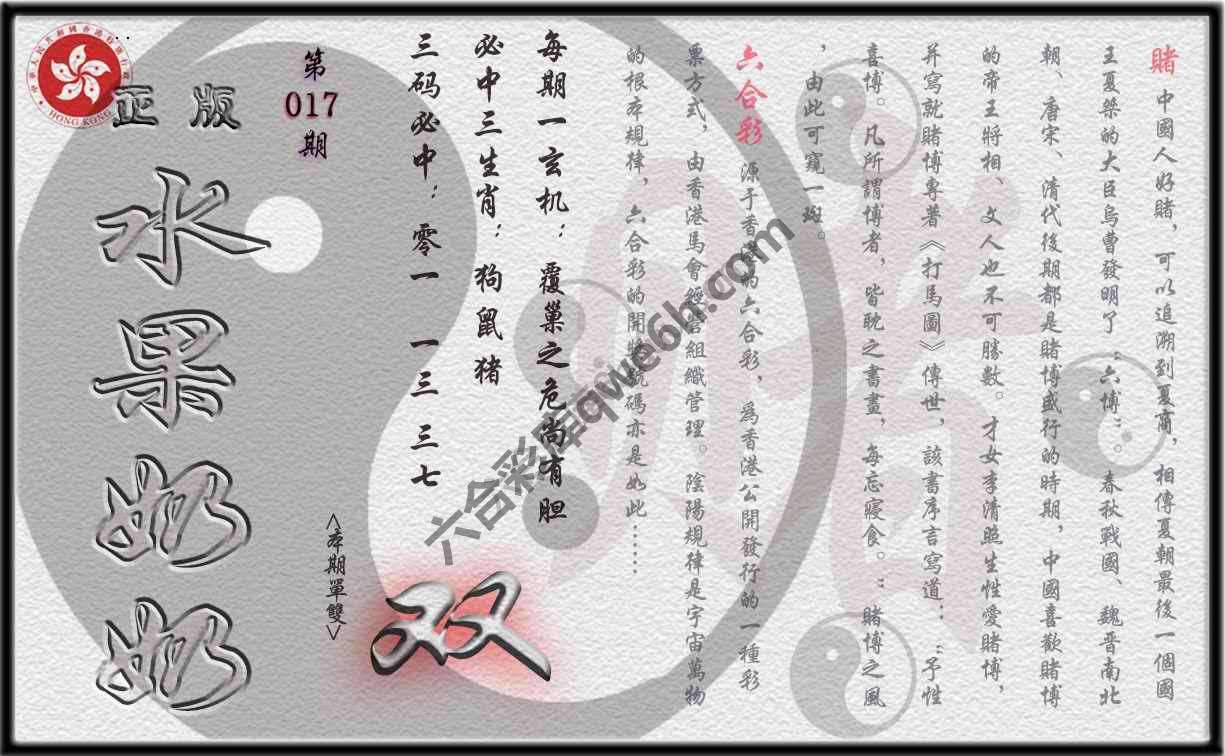 賭中國人好賭，可以追溯到夏商，相傳夏朝最後一個國
王夏桀的大臣烏曹發明了“六博”。春秋戰國、魏晋南北
朝、唐宋、清代後期都是賭博盛行的時期，中國喜歡賭博
的帝王將相、文人也不可勝數。才女李清照生性愛賭博，
并寫就賭博專著《打馬圖》傳世，該書序言寫道：“予性
喜博。凡所謂博者，皆耽之晝，每忘寢食。”賭博之風
，由此可窺一斑。
六合彩源于香港的六合彩，爲香港公開發行的一種彩
票方式，由香港馬會經營組織管理。陰陽規律是宇宙萬物
的根本規律，六合彩的開獎號碼亦是如此……
每期一玄机：覆巢之危尚有胆
必中三生肖：狗鼠猪
三码必中：零一 一三 三七
第
017
期
正版
水果奶奶
<本期單雙>
双
HONG KONG
六合彩库qwe6h.com